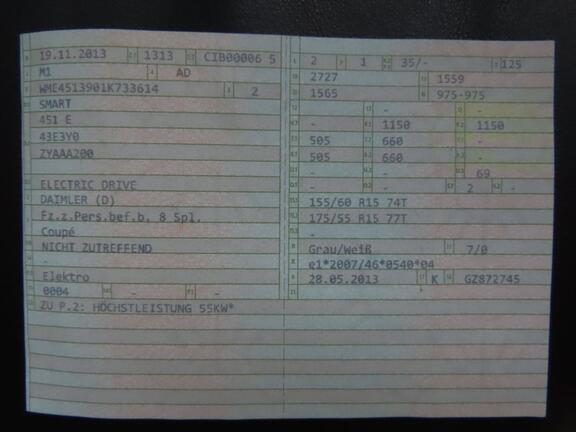 19.11.2013 1313 CIB00006 5
M1 AD
WME4513901K733614 2
SMART
451 E
43E3Y0
ZYAAA200
ELECTRIC DRIVE
DAIMLER (D)
Fz.z.Pers.bef.b. 8 Spl.
Coupé
NICHT ZUTREFFEND
-
Elektro
0004 - -
ZU P.2: HÖCHSTLEISTUNG 55KW*
2 1 35/- 125
2727 1559
1565 975-975
- - -
- 1150 1150
505 660 -
505 660 -
- - 69
- - 2 -
155/60 R15 74T
175/55 R15 77T
-
Grau/Weiß 7/0
e1*2007/46*0540*04
28.05.2013 K GZ872745